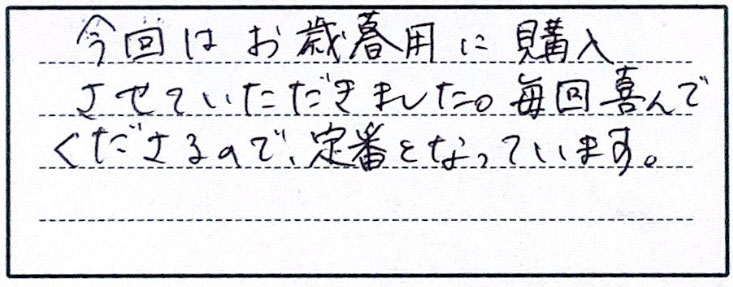 今回はお歳暮用に購入
させていただきました。毎回喜んで
くださるので、定番となっています。